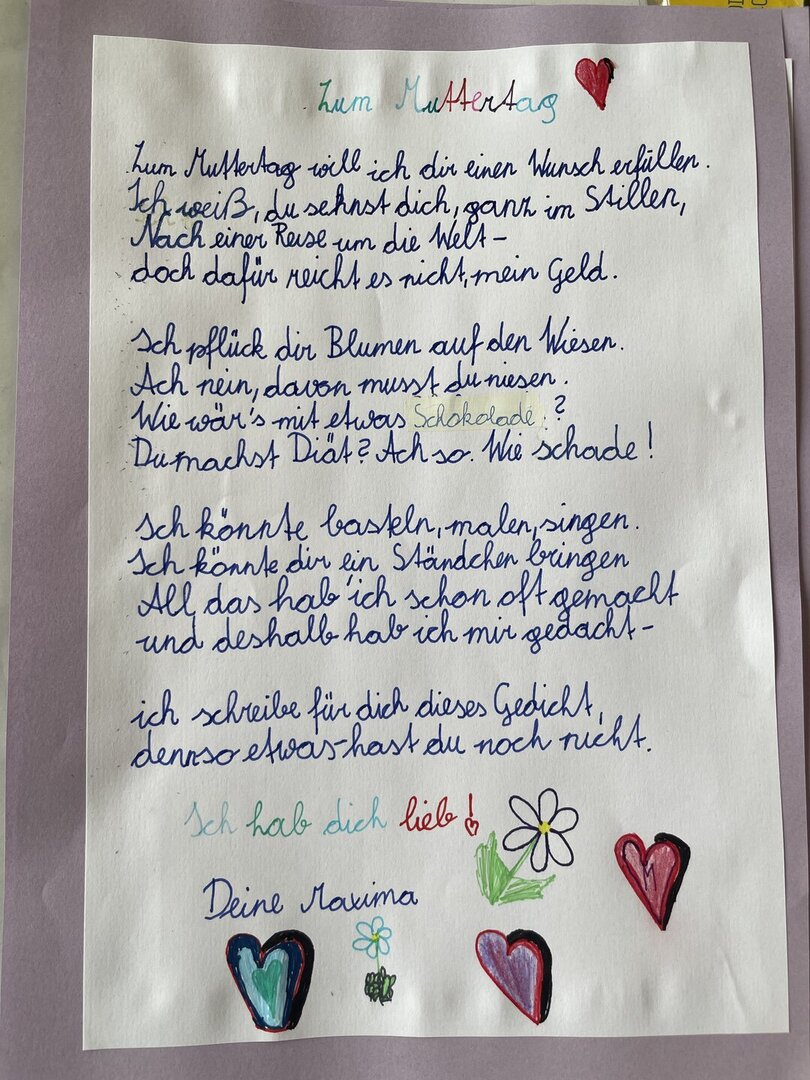 Zum Muttertag
Zum Muttertag will ich dir einen Wunsch erfüllen.
Ich weiß, du sehnst dich, ganz im Stillen,
Nach einer Reise um die Welt –
doch dafür reicht es nicht, mein Geld.
Ich pflück dir Blumen auf den Wiesen.
Ach nein, davon musst du niesen.
Wie wär's mit etwas Schokolade?
Du machst Diät? Ach so. Wie schade!
Ich könnte basteln, malen, singen.
Ich könnte dir ein Ständchen bringen
All das hab ich schon oft gemacht
und deshalb hab ich mir gedacht –
ich schreibe für dich dieses Gedicht,
denn so etwas hast du noch nicht.
Ich hab dich lieb!
Deine Maxima